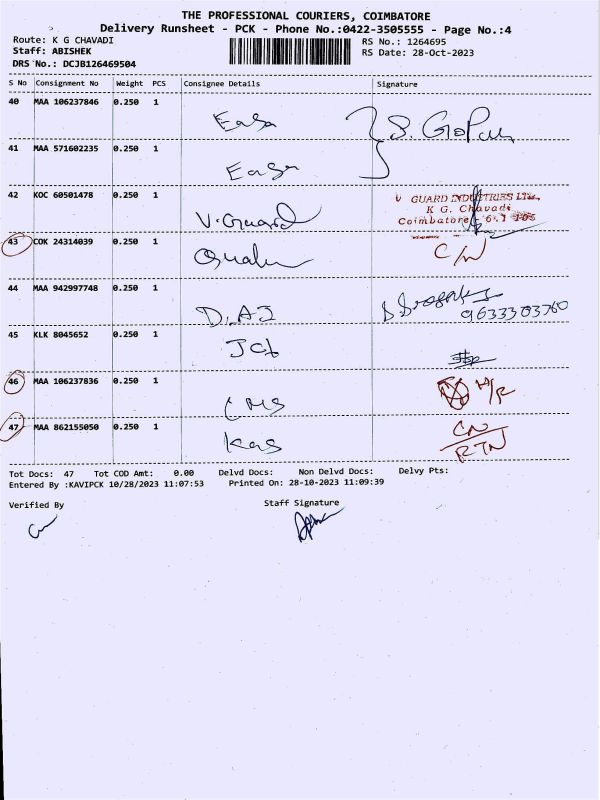 THE PROFESSIONAL COURIERS, COIMBATORE
Delivery Runsheet - PCK - Phone No.:0422-3505555 - Page No.:4
Route: K G CHAVADI
Staff: ABISHEK
DRS No.: DCJB126469504
RS No.: 1264695
RS Date: 28-Oct-2023
S No Consignment No Weight PCS Consignee Details Signature
40 MAA 106237846 0.250 1 Easa S. Gopal
41 MAA 571602235 0.250 1 Easa
42 KOC 60501478 0.250 1 V-Guard V GUARD INDUSTRIES LTD.,
K G. Chavadi
Coimbatore - 
43 COK 24314039 0.250 1 C/N
44 MAA 942997748 0.250 1 D.AJ
45 KLK 8045652 0.250 1
46 MAA 106237836 0.250 1 CMS
47 MAA 862155050 0.250 1 Kas CN
RTN
Tot Docs: 47 Tot COD Amt: 0.00 Delvd Docs: Non Delvd Docs: Delvy Pts:
Entered By :KAVIPCK 10/28/2023 11:07:53 Printed On: 28-10-2023 11:09:39
Verified By Staff Signature